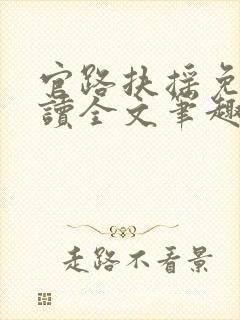 官路扶摇免
读全文笔趣
走路不看景